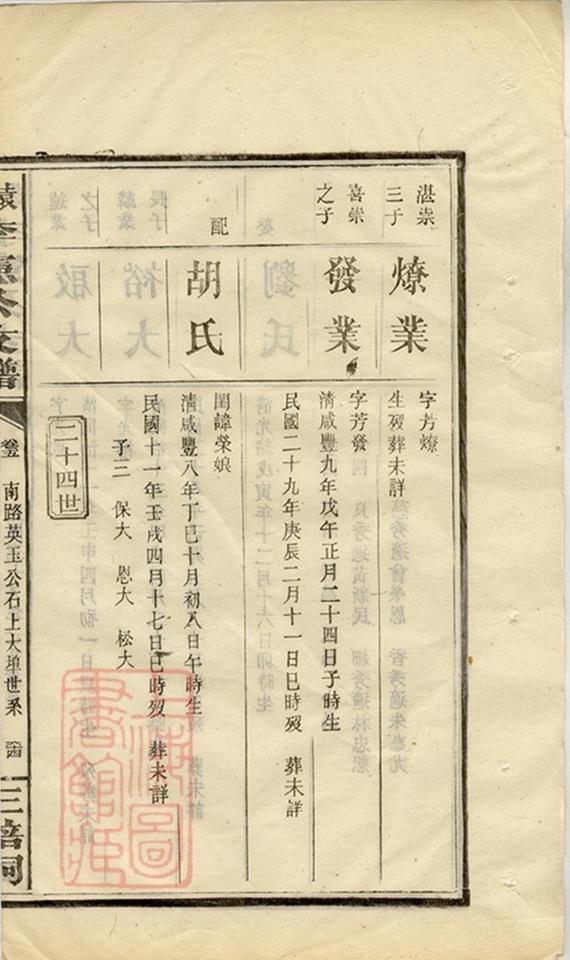 湛崇
三子
燎業
字芳燎
生歿葬未詳
喜崇
之子
發業
字芳發
清咸豐九年戊午正月二十四日子時生
民國二十九年庚辰二月十一日巳時歿 葬未詳
配
胡氏
閨諱榮娘
清咸豐八年丁巳十月初八日午時生
民國十一年壬戌四月十七日巳時歿 葬未詳
子三 保大 恩大 松大
二十四世
南路英玉公石上大埠世系